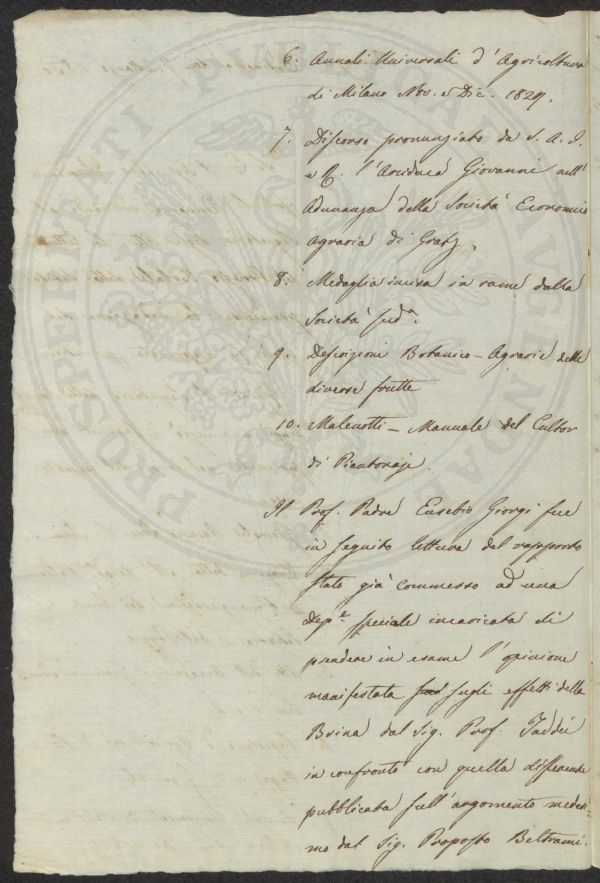 6. Annali Universali d'Agricoltura
di Milano Nov. e Dic. 1829.
7. Discorso pronunziato da S. A. I.
e R. l'Arciduca Giovanni nell'
Adunanza della Società Economico
Agraria di Gratz.
8. Medaglia incisa in rame dalla
Società sudª.
9. Descrizioni Botanico-Agrarie delle
diverse frutte
10. Malenotti - Manuale del Cultor
di Piantonaje.
Il Prof. Padre Eusebio Giorgi fece
in seguito lettura del rapporto
stato già commesso ad una
Depᵉ speciale incaricata di
prendere in esame l'opinione
manifestata sugli effetti della
Brina dal Sig. Prof. Taddei
in confronto con quella differente
pubblicata sull'argomento medesi-
mo dal Sig. Proposto Beltrami.
PROSPERITATI PUBLICAE AUGENDAE